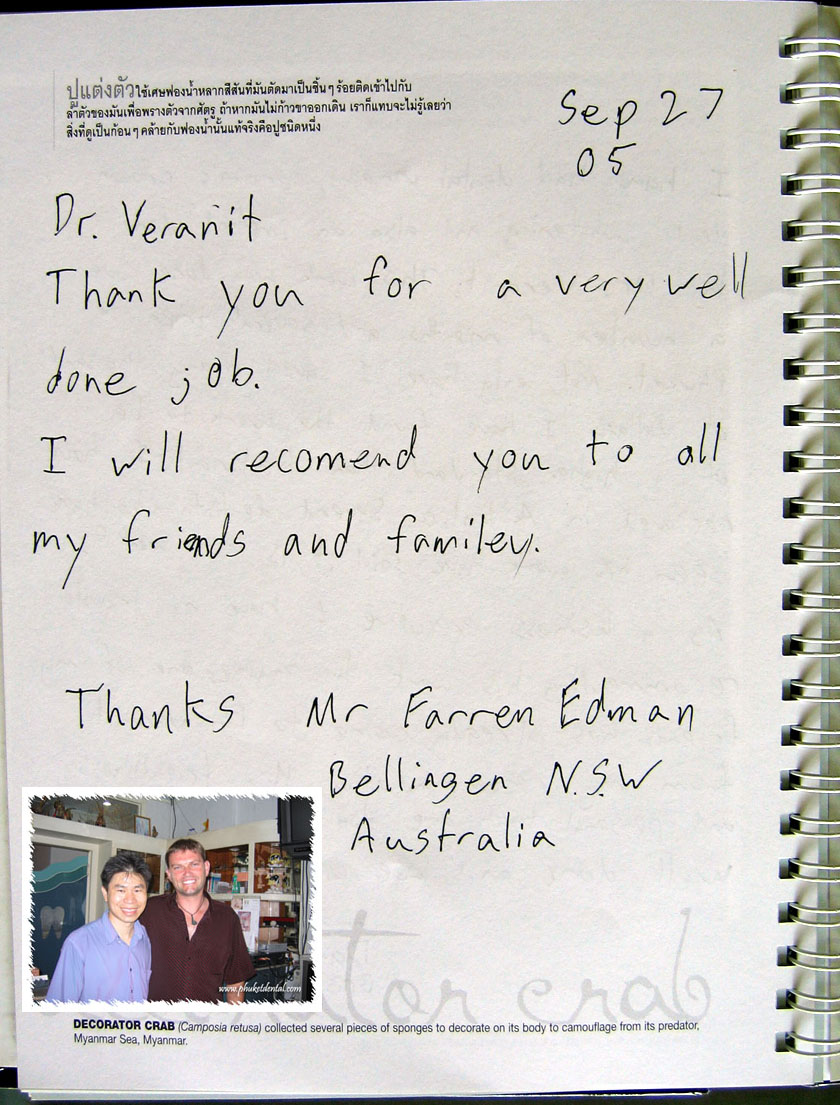 ปูแต่งตัวใช้เศษฟองน้ำหลากสีสันที่มันตัดมาเป็นชิ้น ๆ ร้อยติดเข้าไปกับ
ลำตัวของมันเพื่อพรางตัวจากศัตรู ถ้าหากมันไม่ก้าวขาออกเดิน เราก็แทบจะไม่รู้เลยว่า
สิ่งที่ดูเป็นก้อน ๆ คล้ายกับฟองน้ำนั้นแท้จริงคือปูชนิดหนึ่ง
Sep 27
05
Dr. Veranit
Thank you for a very well
done job.
I will recomend you to all
my friends and familey.
Thanks Mr Farren Edman
Bellingen N.S.W
Australia
www.phuketdental.com
crab
DECORATOR CRAB (Camposia retusa) collected several pieces of sponges to decorate on its body to camouflage from its predator,
Myanmar Sea, Myanmar.